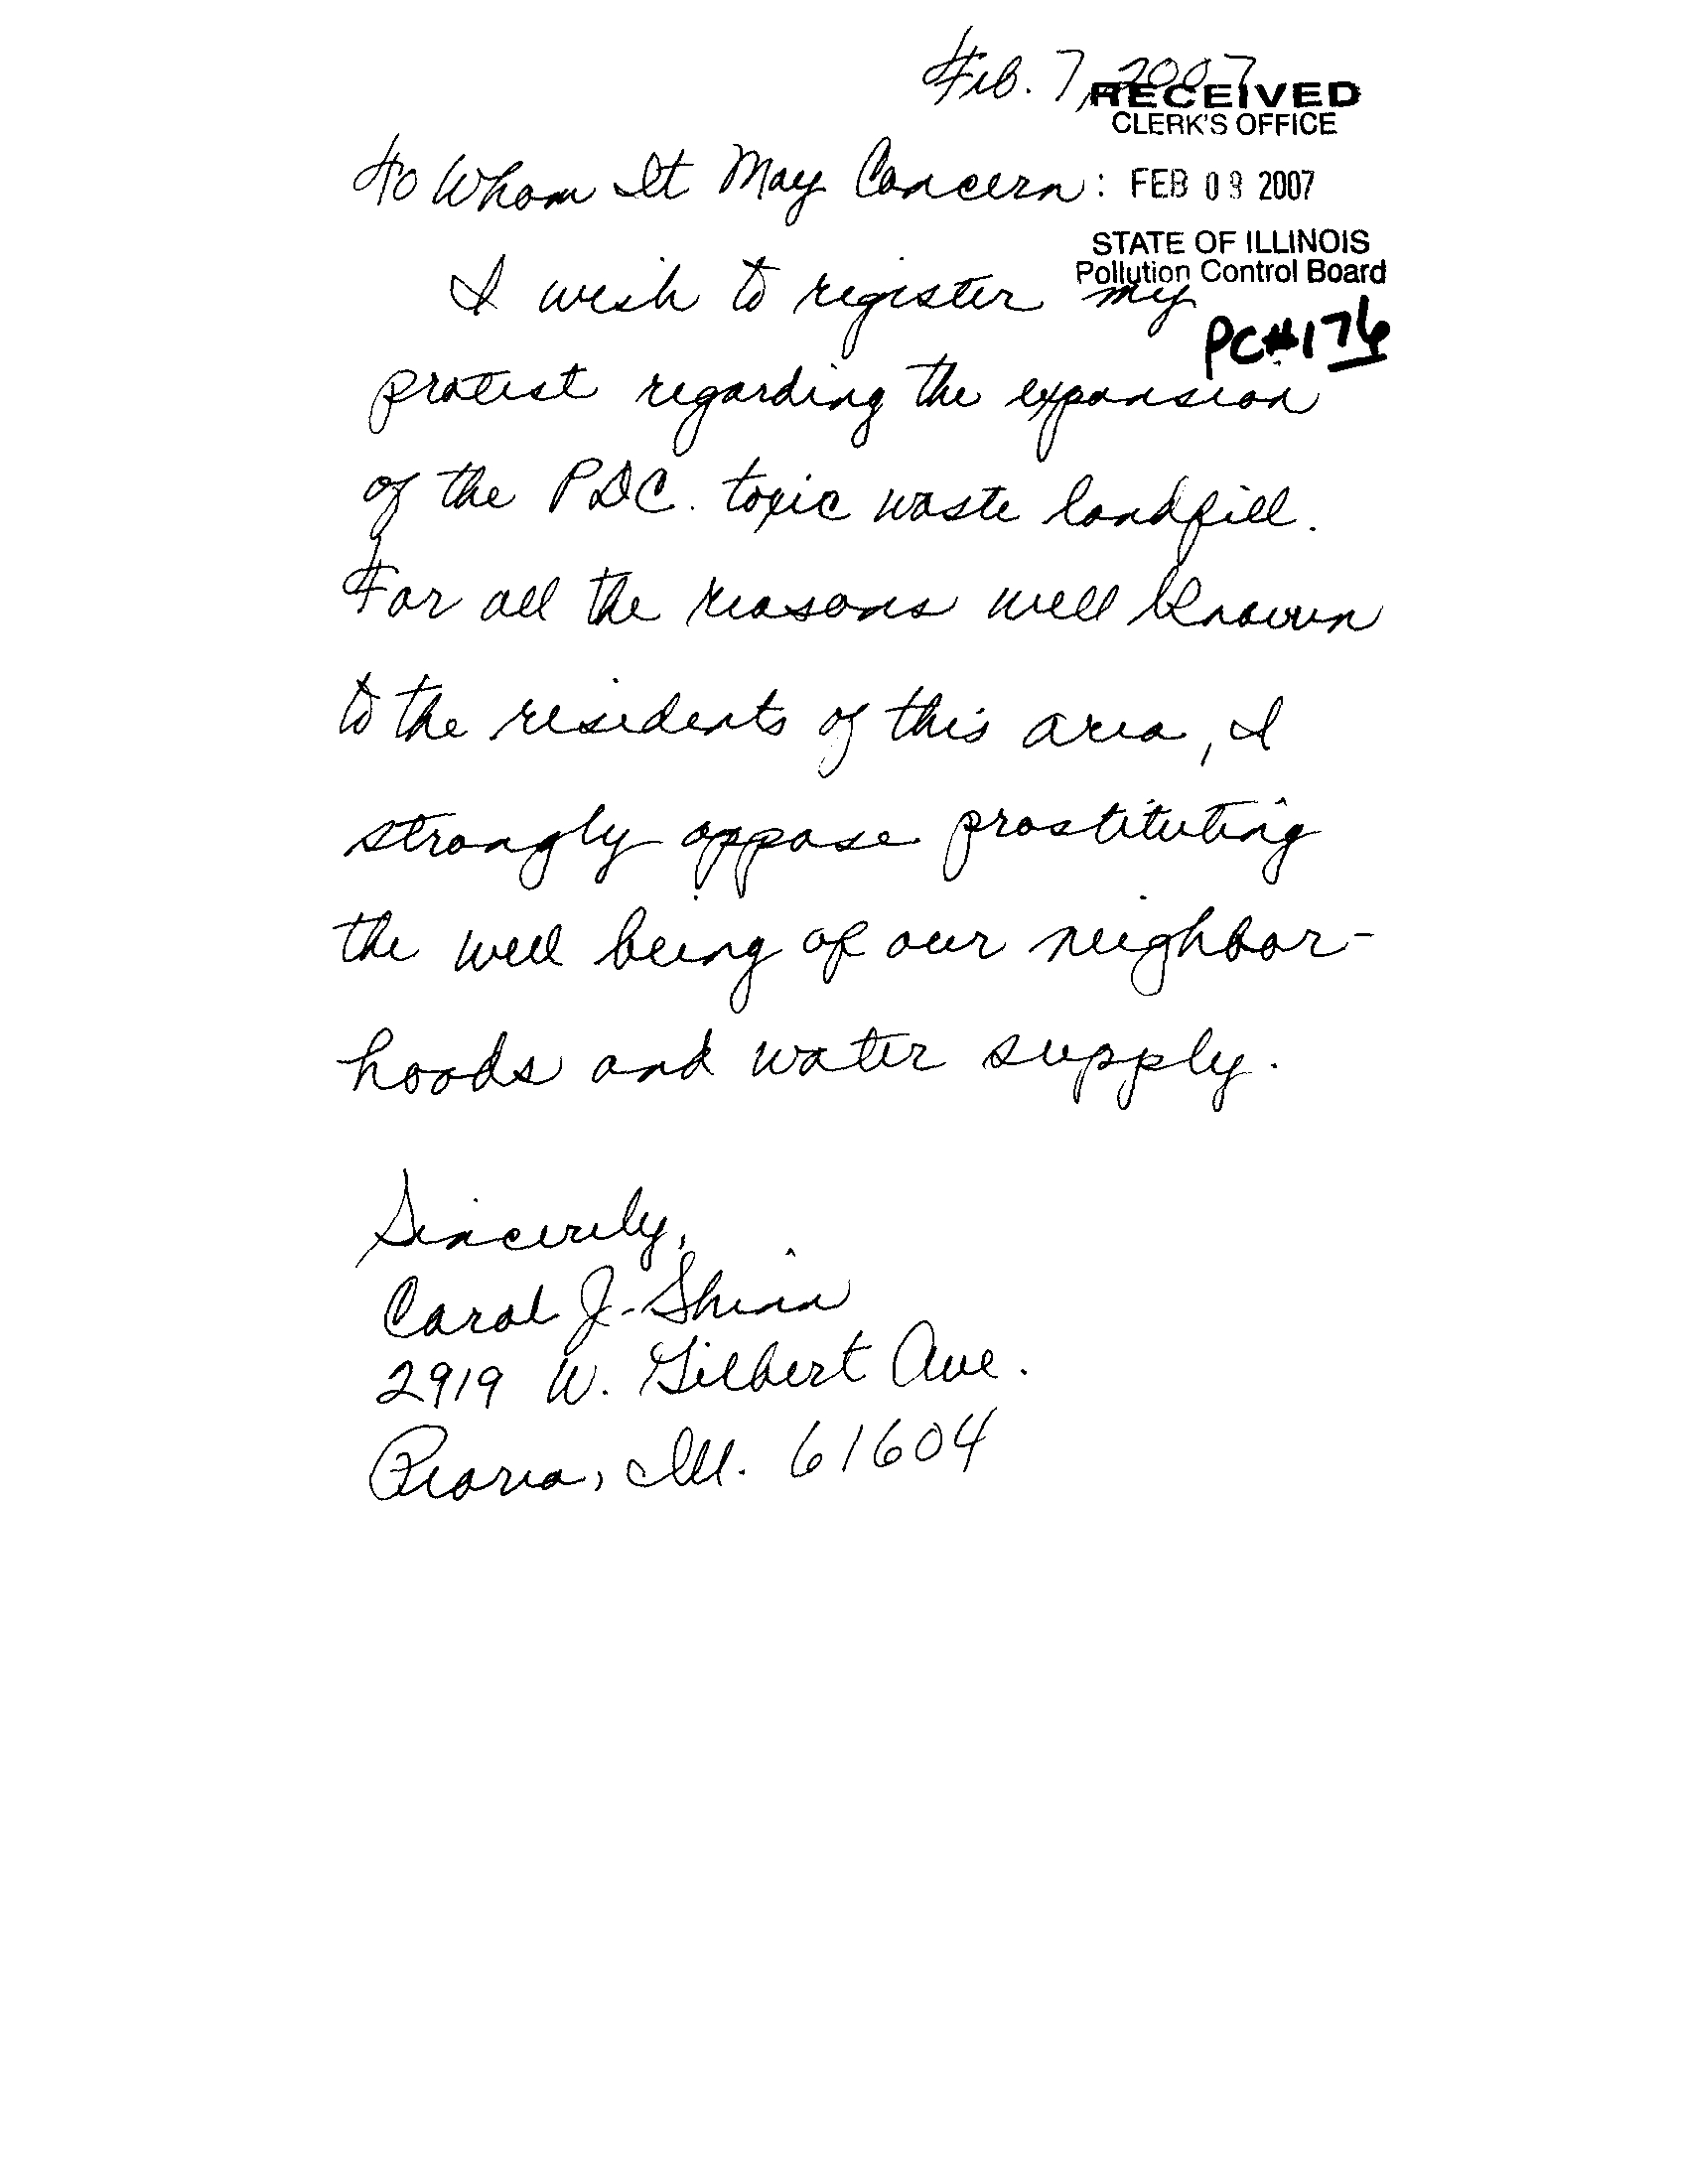 Feb. 7, 2007
RECEIVED
CLERK'S OFFICE
To Whom It May Concern:
FEB 09 2007
STATE OF ILLINOIS
Pollution Control Board
I wish to register my
PC#176
protest regarding the expansion
of the PDC. toxic waste landfill.
For all the reasons well known
to the residents of this area, I
strongly oppose prostituting
the well being of our neighbor-
hoods and water supply.
Sincerely,
Carol J. Shinn
2919 W. Gilbert Ave.
Peoria, Ill. 61604